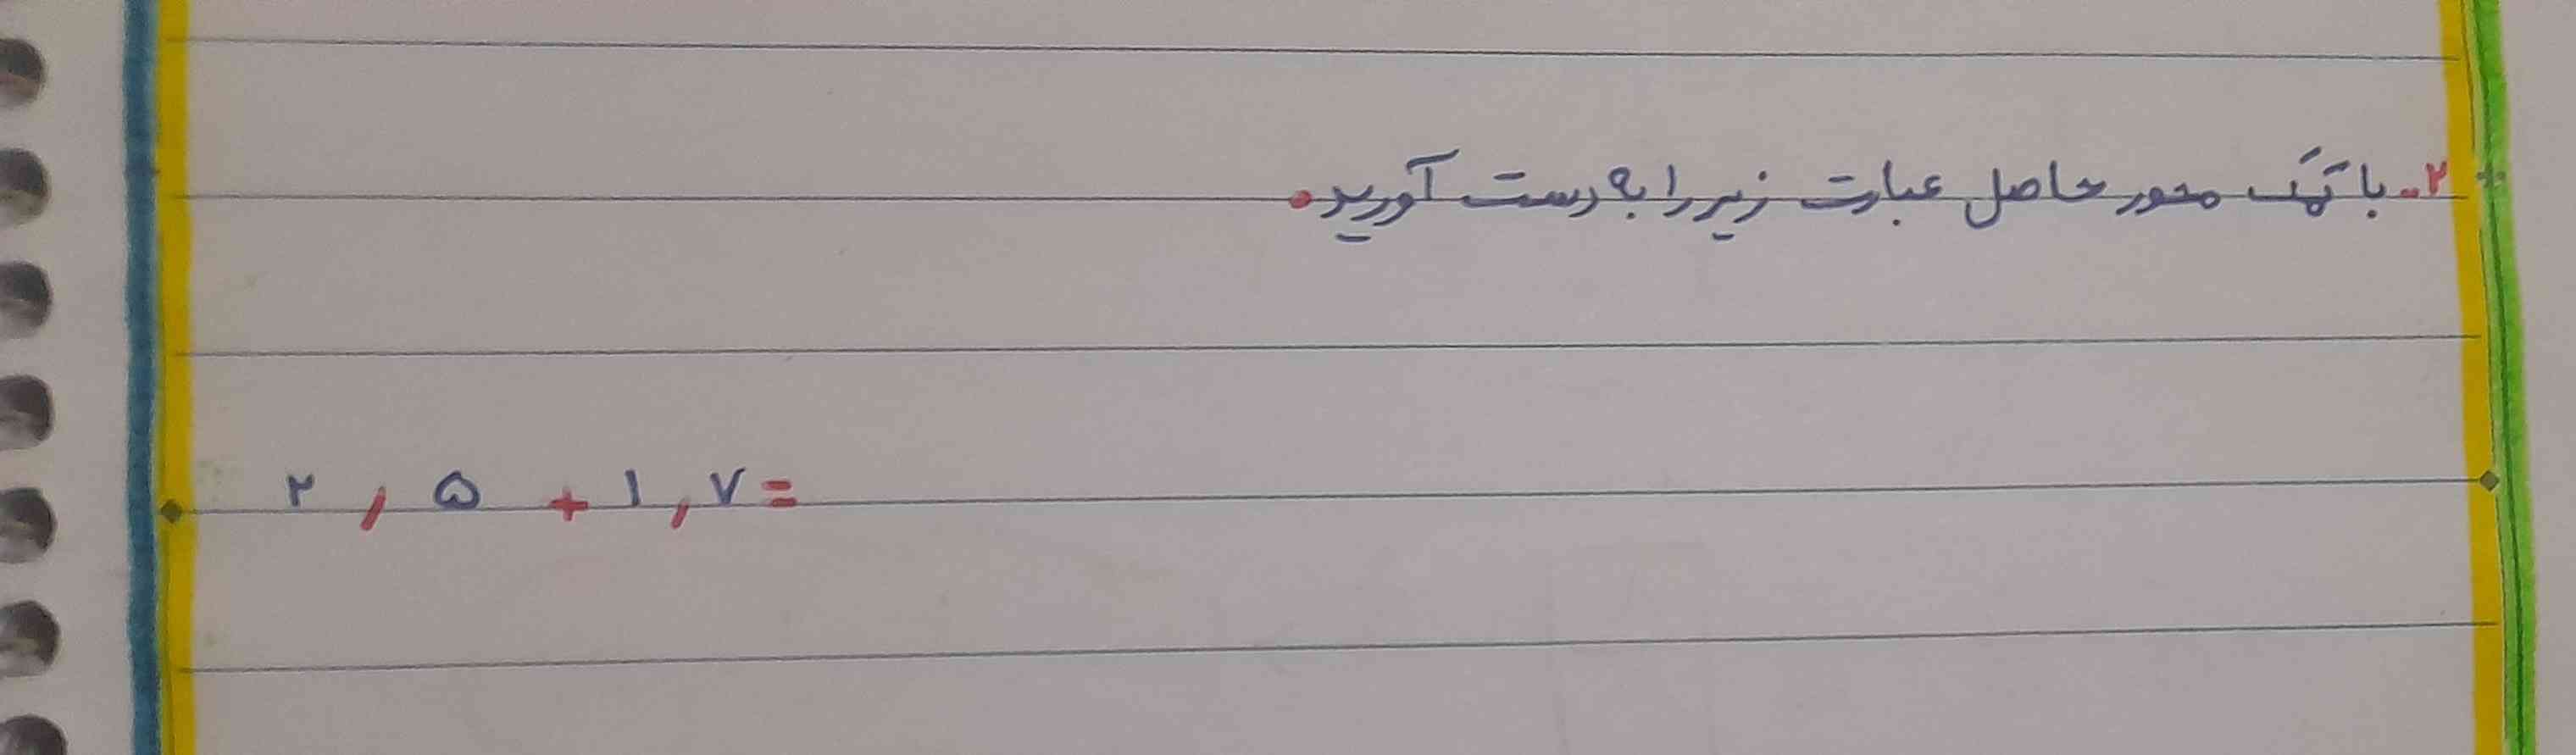 ۲.. با کمک محور حاصل عبارت زیر را به دست آورید.
۲,۵ + ۱,۷ =